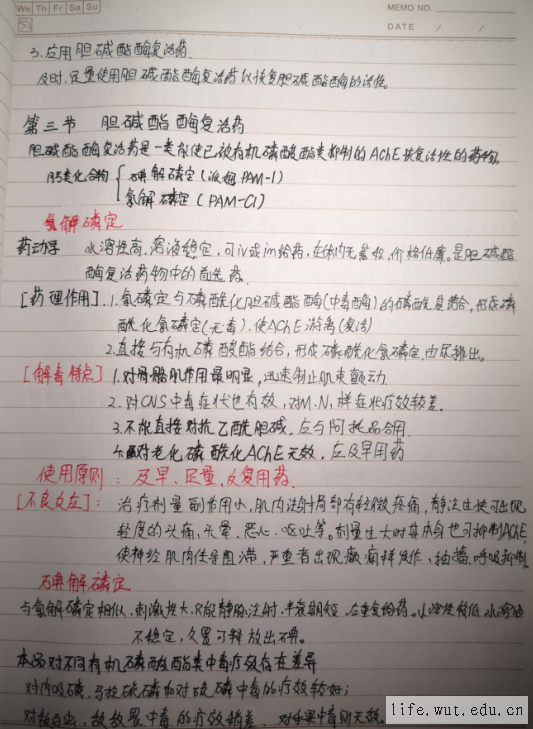 We Th Fr Sa Su
MEMO NO.
DATE / /
3.应用胆碱酯酶复活药.
及时.足量使用胆碱酯酶复活药以恢复胆碱酯酶的活性.
第三节 胆碱酯酶复活药
胆碱酯酶复活药是一类能使已被有机磷酸酯类抑制的AChE恢复活性的药物
肟类化合物 { 碘解磷定(派姆PAM-I)
氯解磷定(PAM-Cl)
氯解磷定
药动学 水溶性高,溶液稳定,可iv或im给药,在体内无蓄积,价格低廉。是胆碱酯
酶复活药物中的首选药.
[药理作用].1.氯磷定与磷酰化胆碱酯酶(中毒酶)的磷酰基结合,形成磷
酰化氯磷定(无毒).使AChE游离(复活)
2.直接与有机磷酸酯结合,形成磷酰化氯磷定.由尿排出。
[解毒特点] 1.对骨骼肌作用最明显,迅速制止肌束颤动.
2.对CNS中毒症状也有效,对M.N样症状疗效较差.
3.不能直接对抗乙酰胆碱.应与阿托品合用.
4.对老化磷酰化AChE无效,应及早用药
使用原则:及早、足量,反复用药.
[不良反应]: 治疗剂量副作用小,肌肉注射局部有轻微疼痛,静注过快可出现
轻度的头痛、头晕、恶心、呕吐等。剂量过大时其本身也可抑制AChE,
使神经肌肉传导阻滞,严重者出现癫痫样发作、抽搐、呼吸抑制.
碘解磷定
与氯解磷定相似.刺激性大.只能静脉注射.半衰期短.应重复给药.水溶性较低.水溶液
不稳定,久置可释放出碘.
本品对不同有机磷酸酯类中毒疗效存在差异
对内吸磷、马拉硫磷和对硫磷中毒的疗效较好;
对敌百虫、敌敌畏中毒的疗效稍差. 对乐果中毒则无效.
life.wut.edu.cn